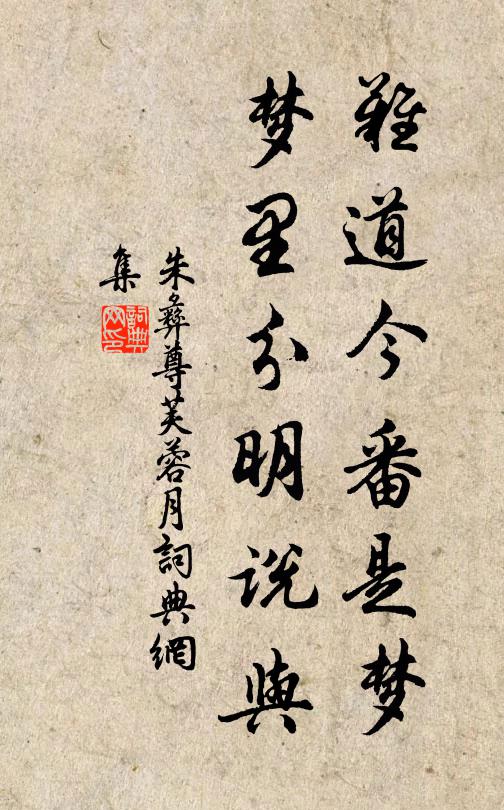 難道今番是梦
梦里分明説與
朱彝尊芙蓉月詞典網
集
詞典
网印